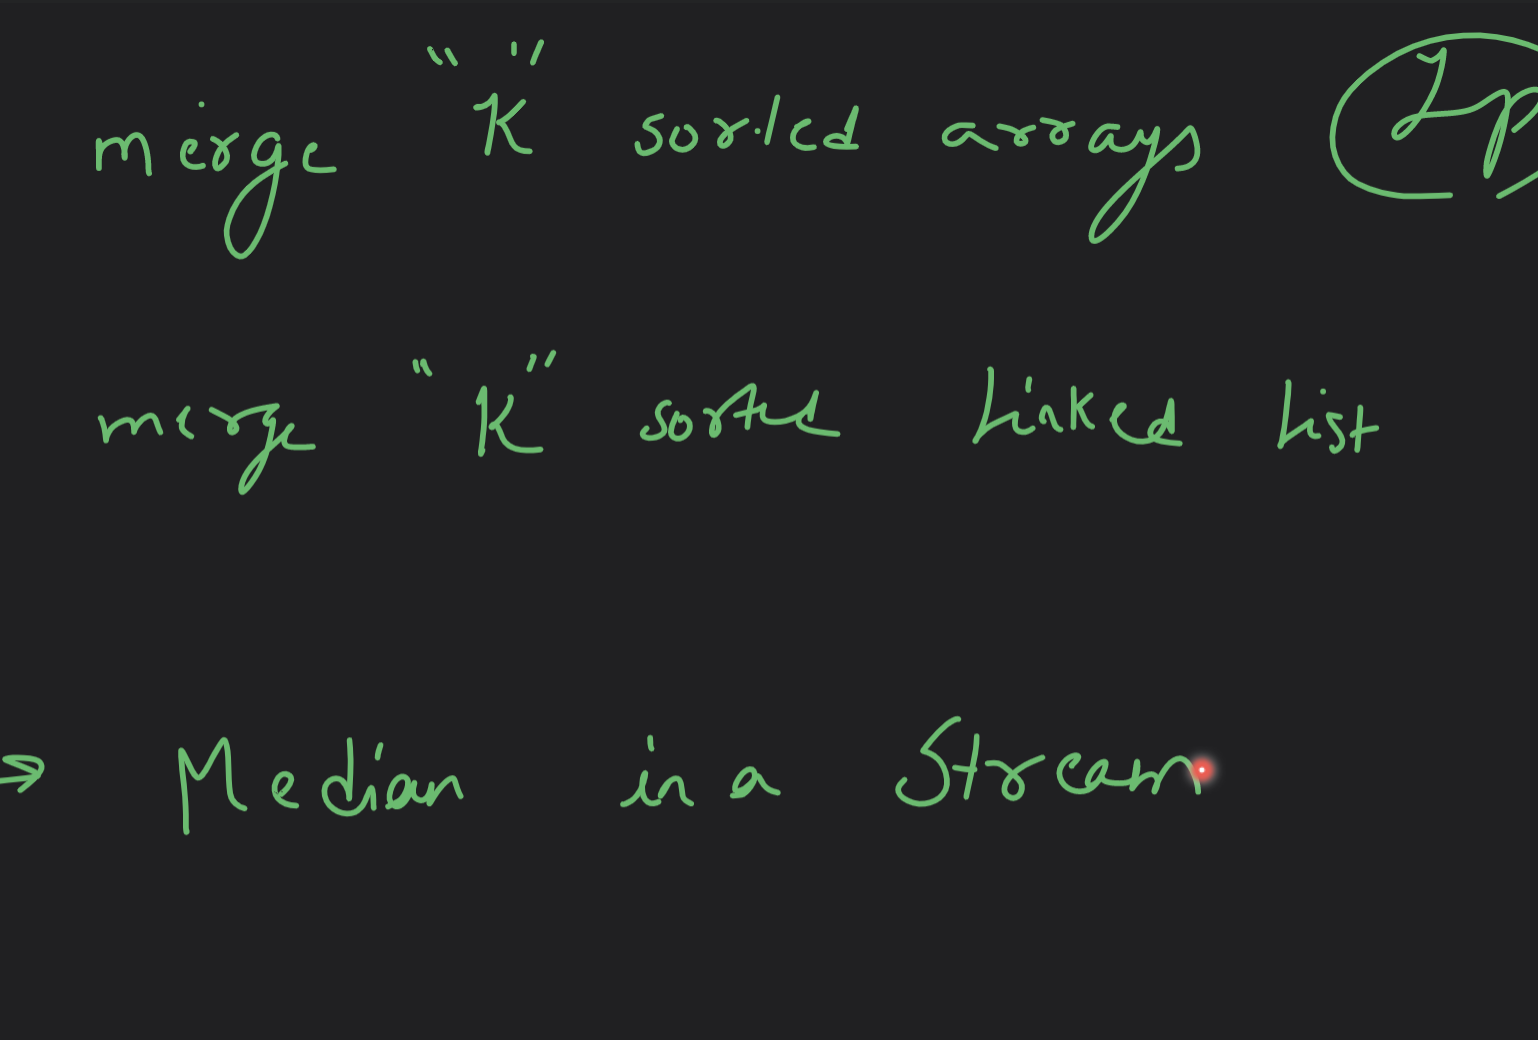 merge "K" sorted arrays
merge "K" sorted Linked List
→ Median in a Stream